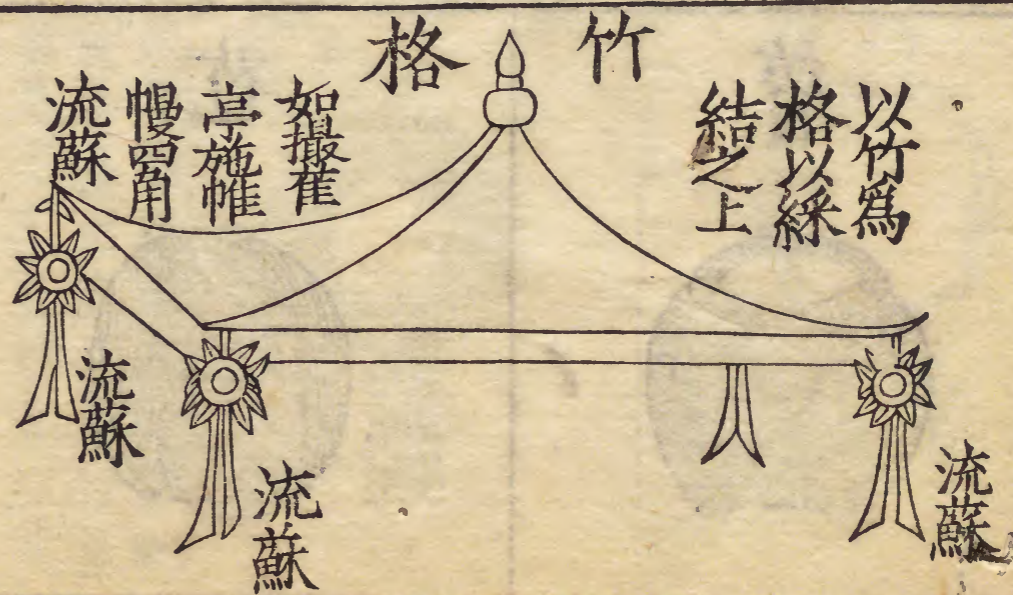 竹格
以竹爲
格以綵
結之上
如撮萑
亭施帷
幔四角
流蘇
流蘇
流蘇
流蘇